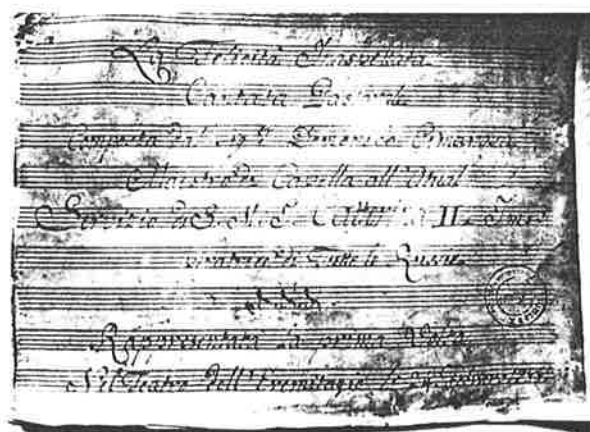 La Felicità Inaspettata
Cantata Pastorale
Composta dal Sig.r Domenico Cimarosa
Maestro di Capella all' attual
Servizio di S. M. I. Catterina II. Impe
ratrice di Tutte le Russie
Rappresentata la prima Volta
Nel Teatro dell' Eremitagio li 24